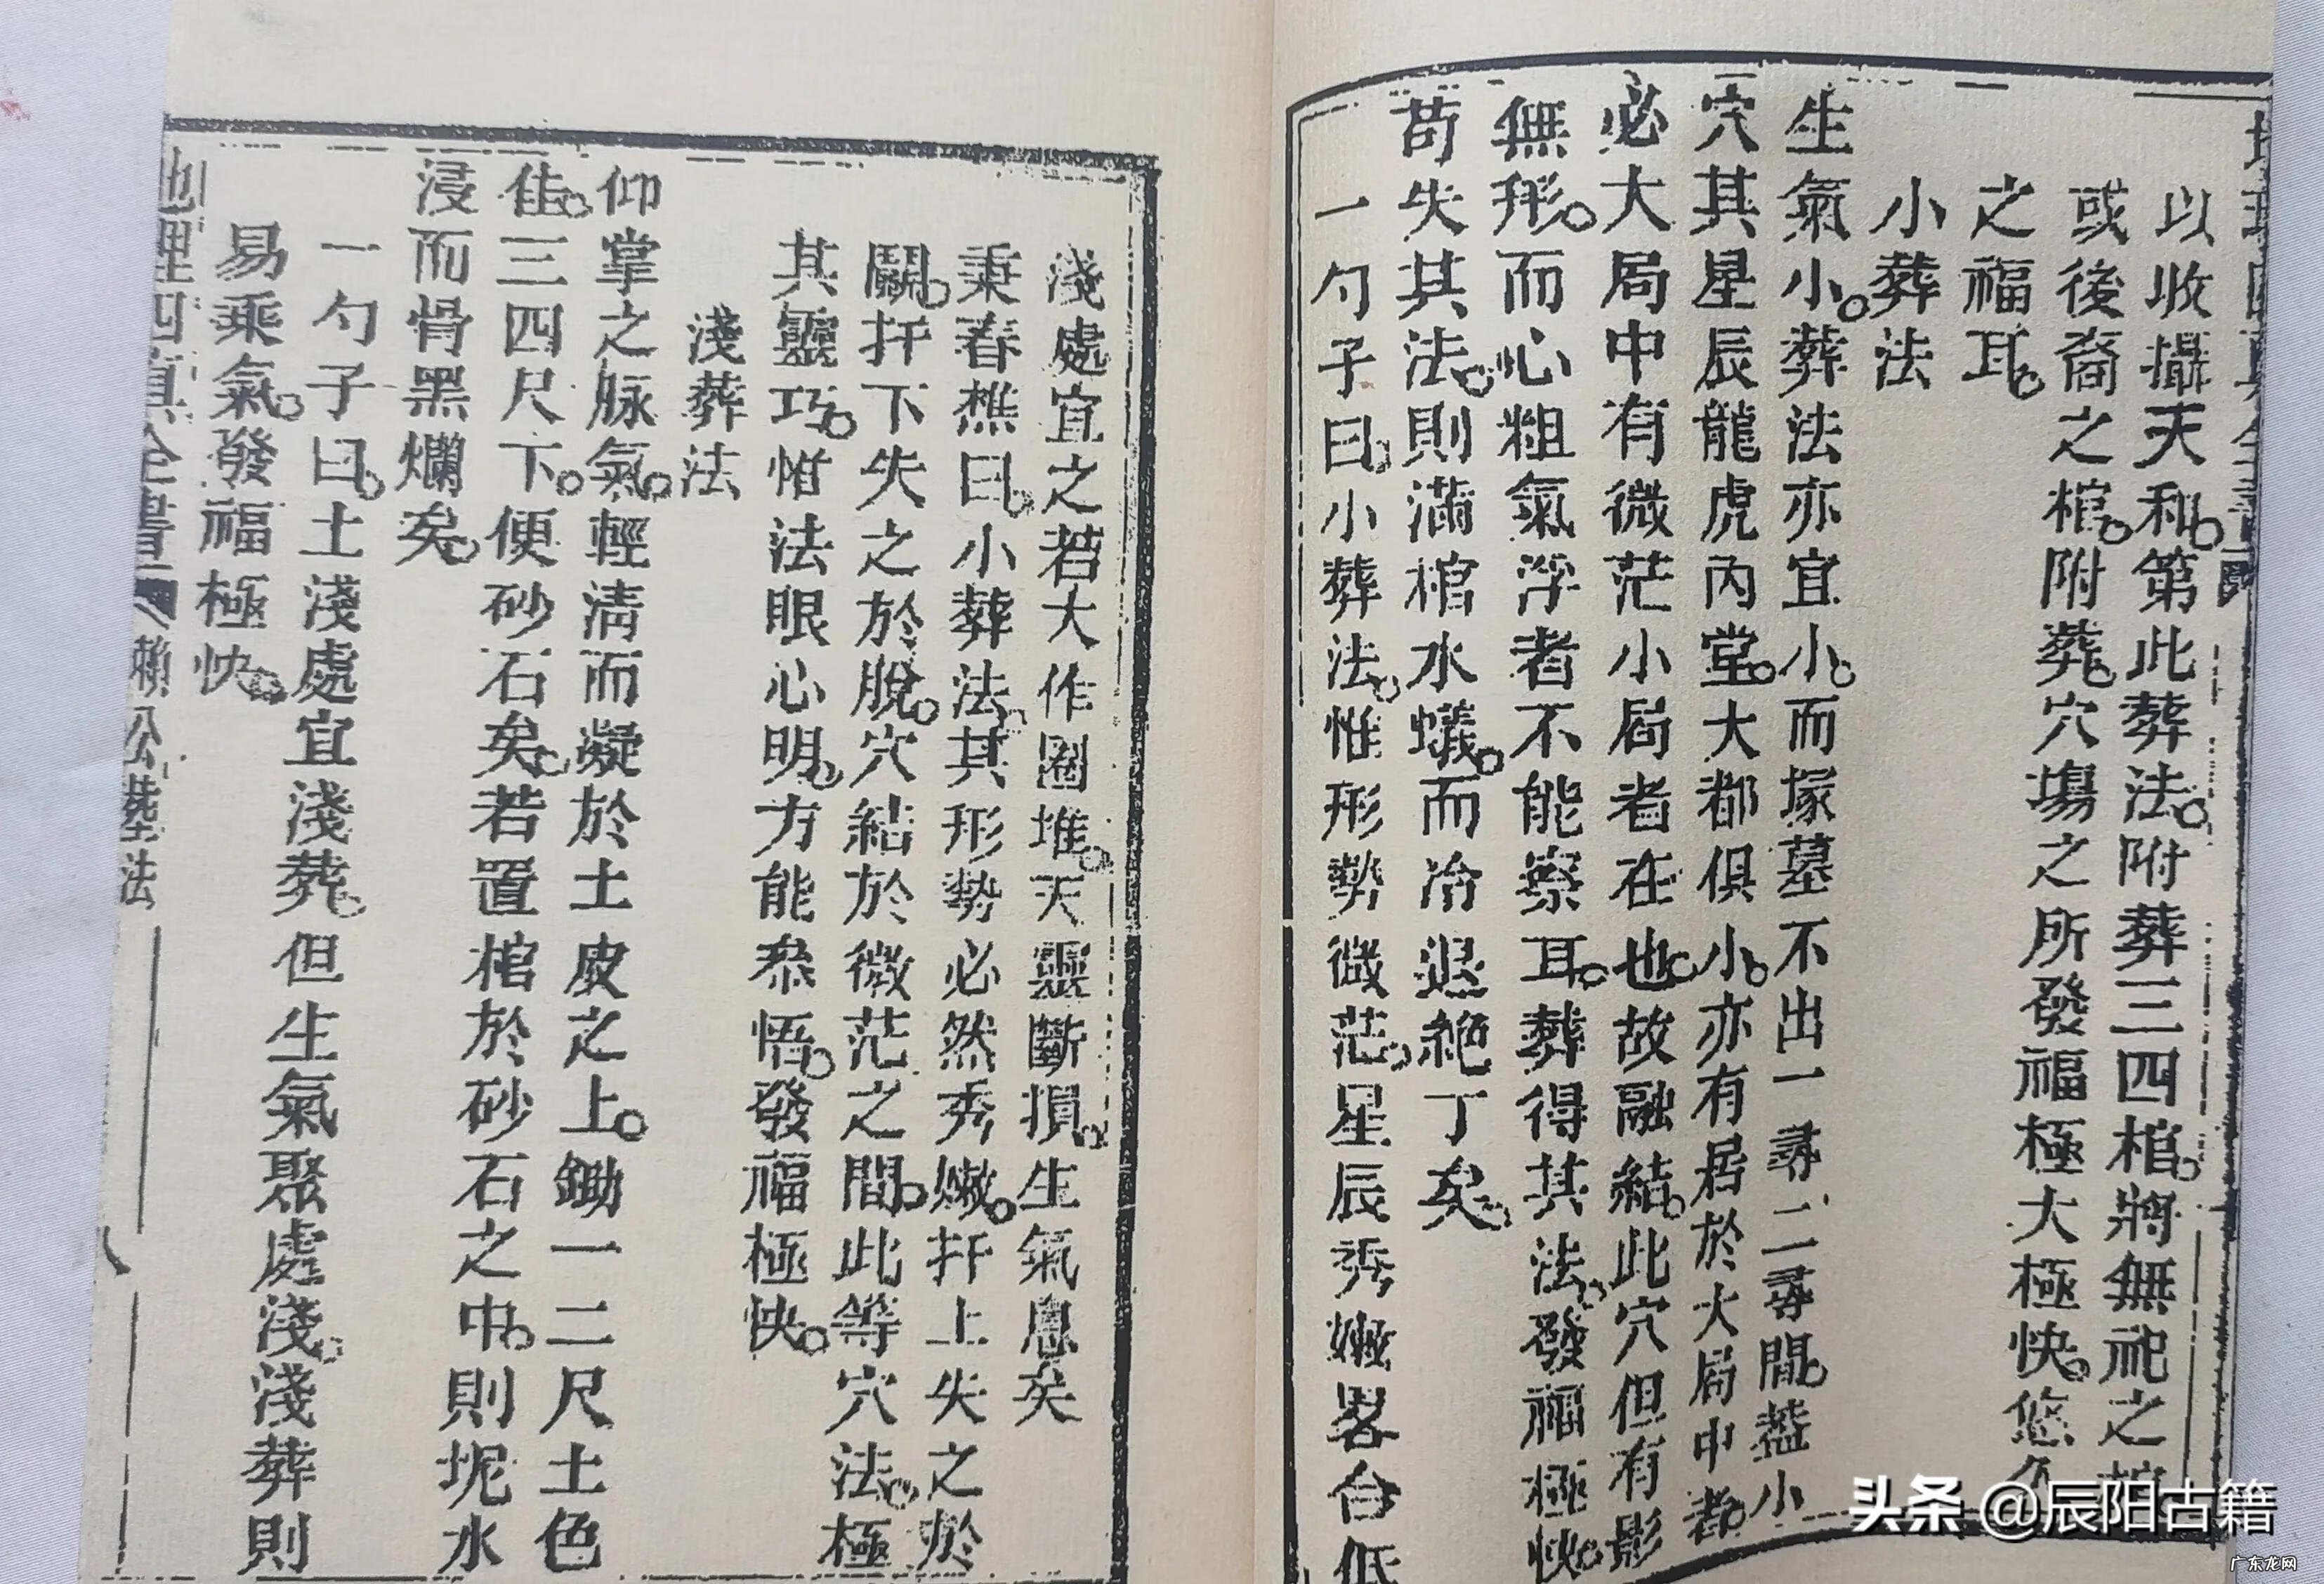 以收攝天和第此葬法附葬三四棺將無祀之棺
或後裔之棺附葬穴塲之所發福極大極快悠久
之福耳
小葬法
生氣小葬法亦宜小而塚墓不出一尋二尋間葢小
穴其星辰龍虎內堂大都俱小亦有居於大局中者
必大局中有微茫小局者在也故融結此穴但有影
無形而心粗氣浮者不能察耳葬得其法發福極快
苟失其法則滿棺水蟻而冷退絶丁矣
一勺子曰小葬法惟形勢微茫星辰秀嫩畧台低
淺處宜之若大作圈堆天靈斷損生氣息矣
秉春樵曰小葬法其形勢必然秀嫩扦上失之於
鬭扦下失之於脫穴結於微茫之間此等穴法極
其靈巧惟法眼心明方能叅悟發福極快
淺葬法
仰掌之脉氣輕淸而凝於土皮之上鋤一二尺土色
佳三四尺下便砂石矣若置棺於砂石之中則坭水
浸而骨黑爛矣
一勺子曰土淺處宜淺葬但生氣聚處淺淺葬則
易乘氣發福極快
地理四眞全書 賴公葬法
头条 @辰阳古籍
广东龙网